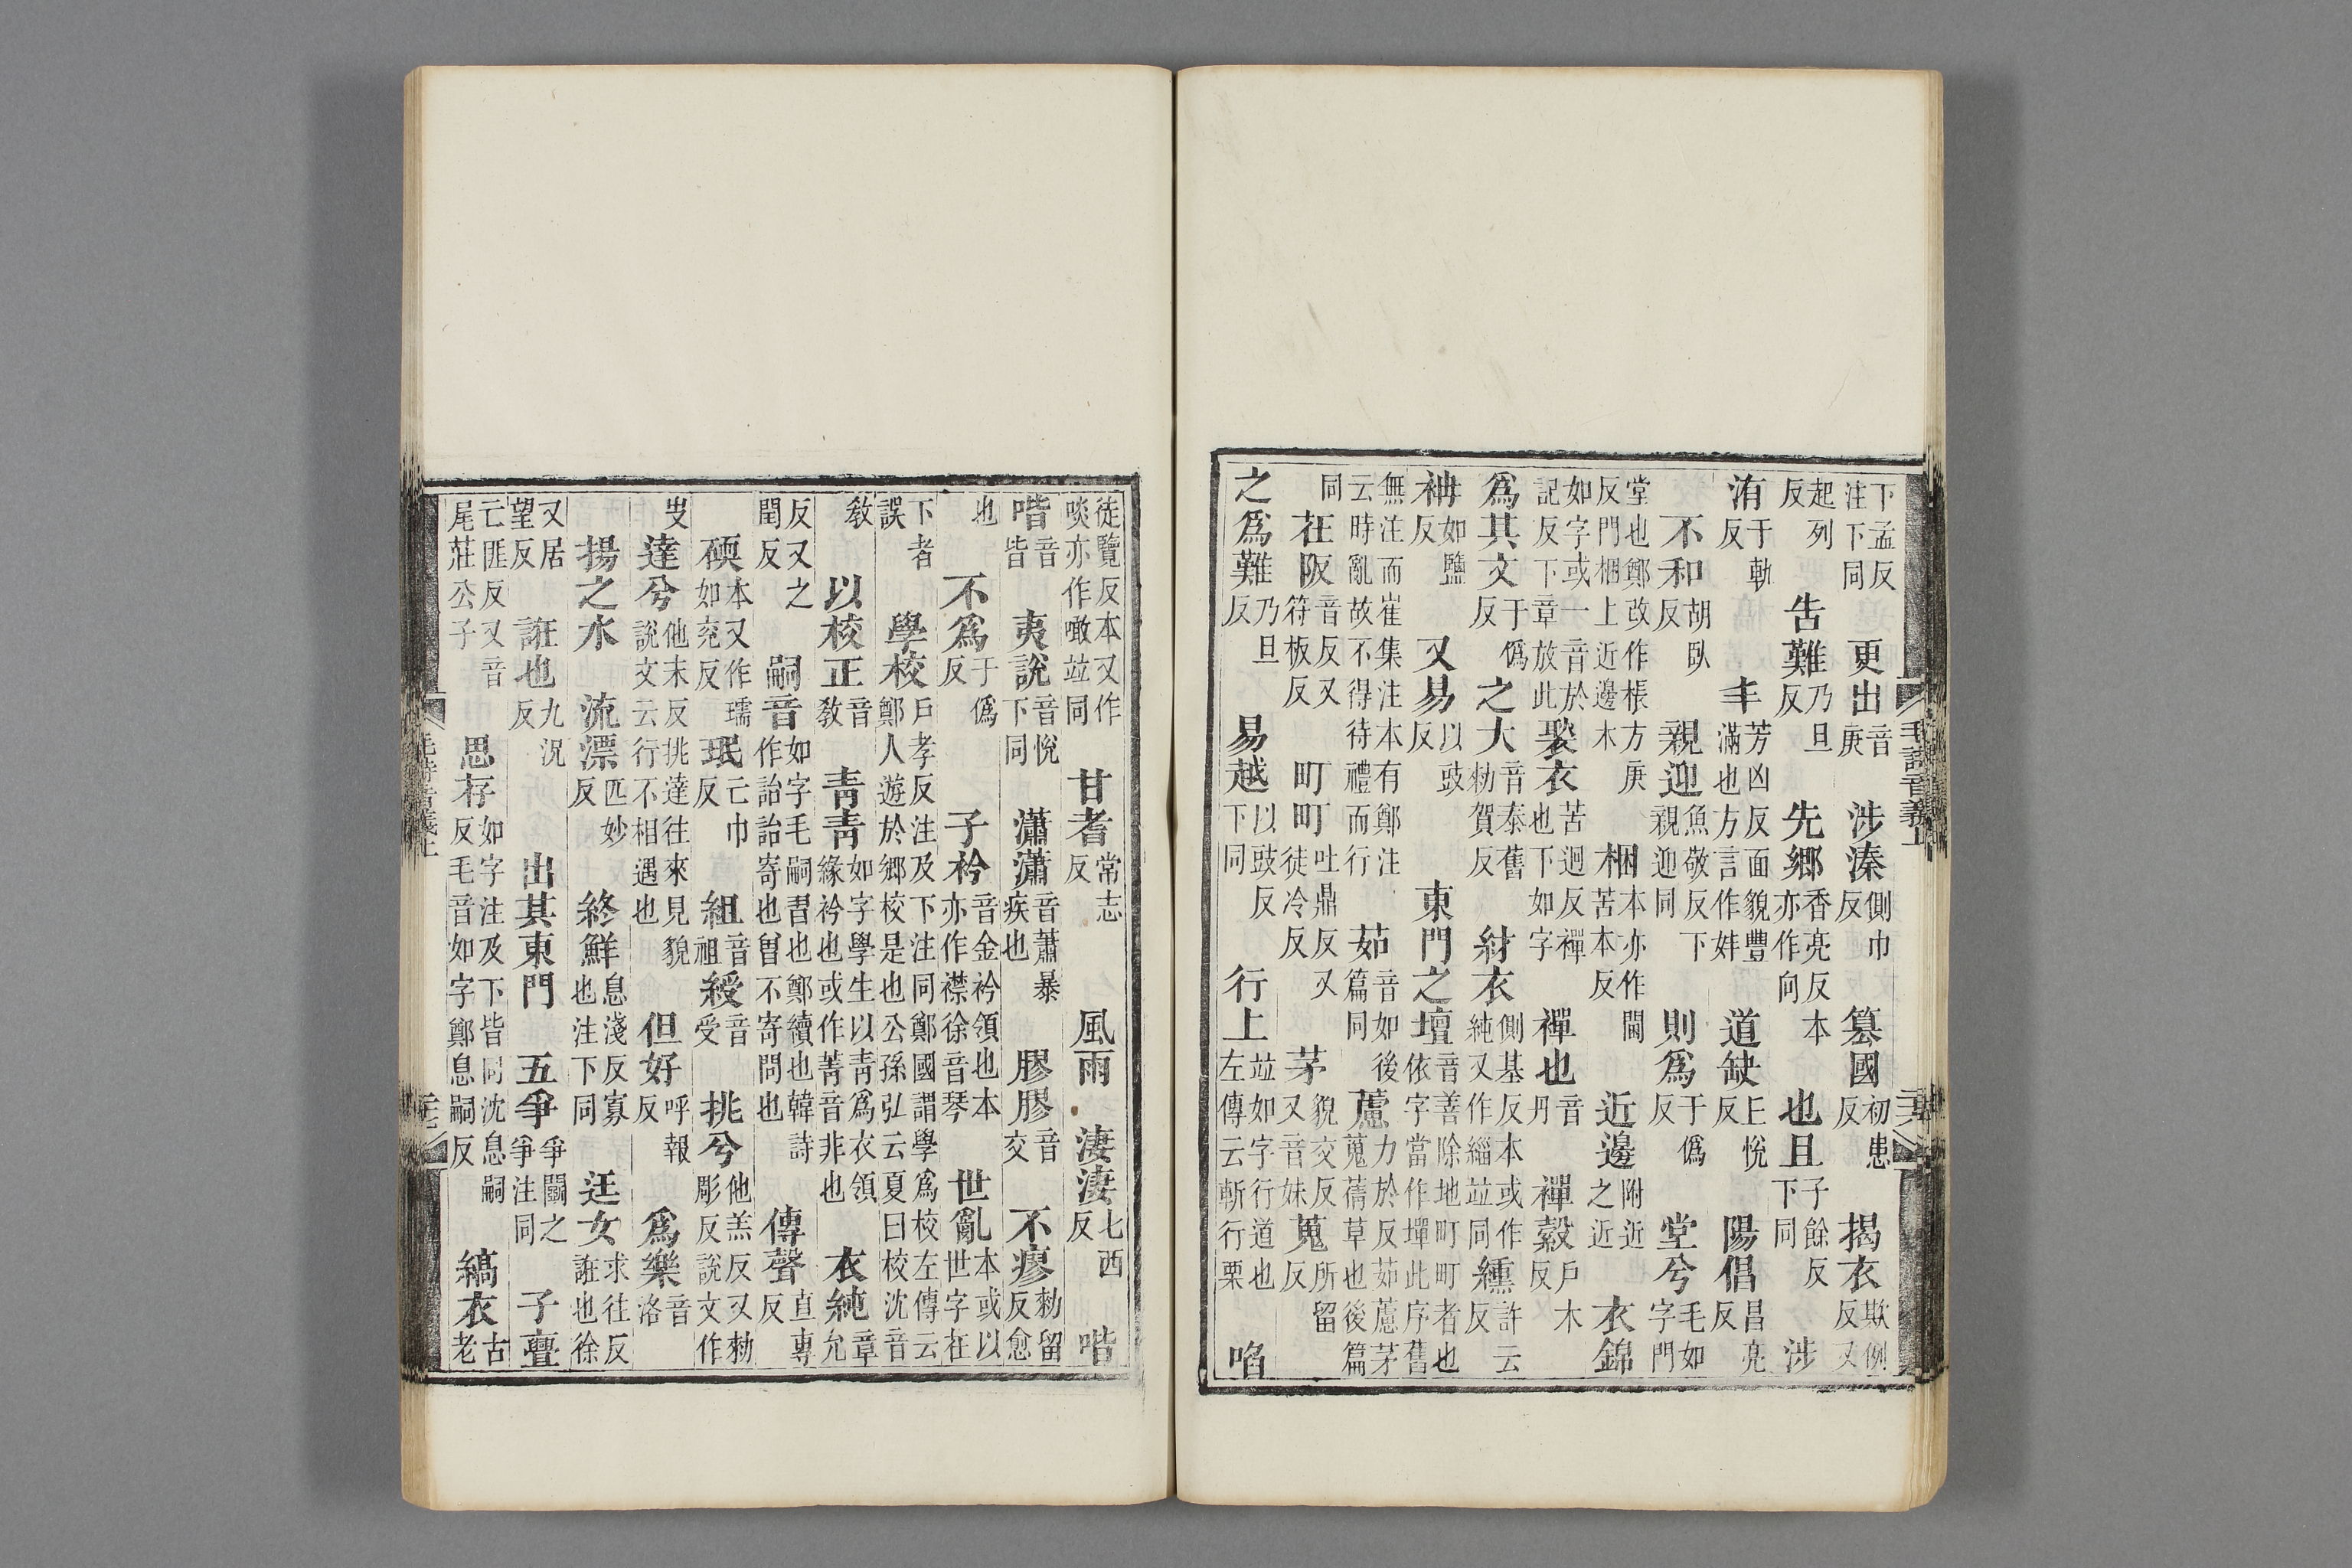 下孟反注下同 更出音庚 涉溱側巾反 簒國初患反 揭衣欺例反又
起列反 告難乃旦反 先郷香亮反本亦作向 也且子餘反下同 涉
洧于軌反 丰芳凶反面貌豐滿也方言作妦 道缺丘悅反 陽倡昌亮反
不和胡臥反 親迎魚敬反下親迎同 則爲于僞反 堂兮毛如字門
堂也鄭改作棖方庚反門梱上近邊木 梱本亦作閫苦本反 近邊附近之近 衣錦
如字或一音於記反下章放此 褧衣苦迥反禪也下如字 禪也音丹 禪縠戶木反
爲其文于僞反 之大音泰舊勑賀反 紂衣側基反本或作純又作緇竝同 纁許云反
袡如鹽反 又易以豉反 東門之墠音善除地町町者也依字當作墠此序舊
無注而崔集注本有鄭注云時亂故不得待禮而行 茹音如後篇同 藘力於反茹藘茅蒐蒨草也後篇
同 在阪音反又符板反 町町吐鼎反又徒冷反 茅貌交反又音妹 蒐所留反
之爲難乃旦反 易越以豉反下同 行上竝如字行道也左傳云斬行栗 啗
毛詩音義上
徒覽反本又作啖亦作噉竝同 甘耆常志反 風雨 淒淒七西反 喈
喈音皆 夷說音悅下同 瀟瀟音蕭暴疾也 膠膠音交 不瘳勑留反愈
也 不爲于僞反 子衿音金衿領也本亦作襟徐音琴 世亂本或以世字在
下者誤 學校戶孝反注及下注同鄭國謂學爲校左傳云鄭人遊於郷校是也公孫弘云夏曰校沈音
敎 以校正音敎 靑靑如字學生以靑爲衣領緣衿也或作菁音非也 衣純章允
反又之閏反 嗣音如字毛嗣習也鄭續也韓詩作詒詒寄也曾不寄問也 傳聲直專反
碝本又作瓀如兖反 珉亡巾反 組音祖 綬音受 挑兮他羔反又勑彫反說文作
𠬢 達兮他末反挑達往來見貌說文云行不相遇也 但好呼報反 爲樂音洛
揚之水 流漂匹妙反 終鮮息淺反寡也注下同 迋女求往反誑也徐
又居望反 誑也九況反 出其東門 五爭爭鬭之爭注同 子亹
亡匪反又音尾莊公子 思存如字注及下皆同沈息嗣反毛音如字鄭息嗣反 縞衣古老